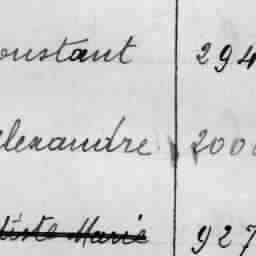 onstant 294
lexandre 200
tiste Marie 927